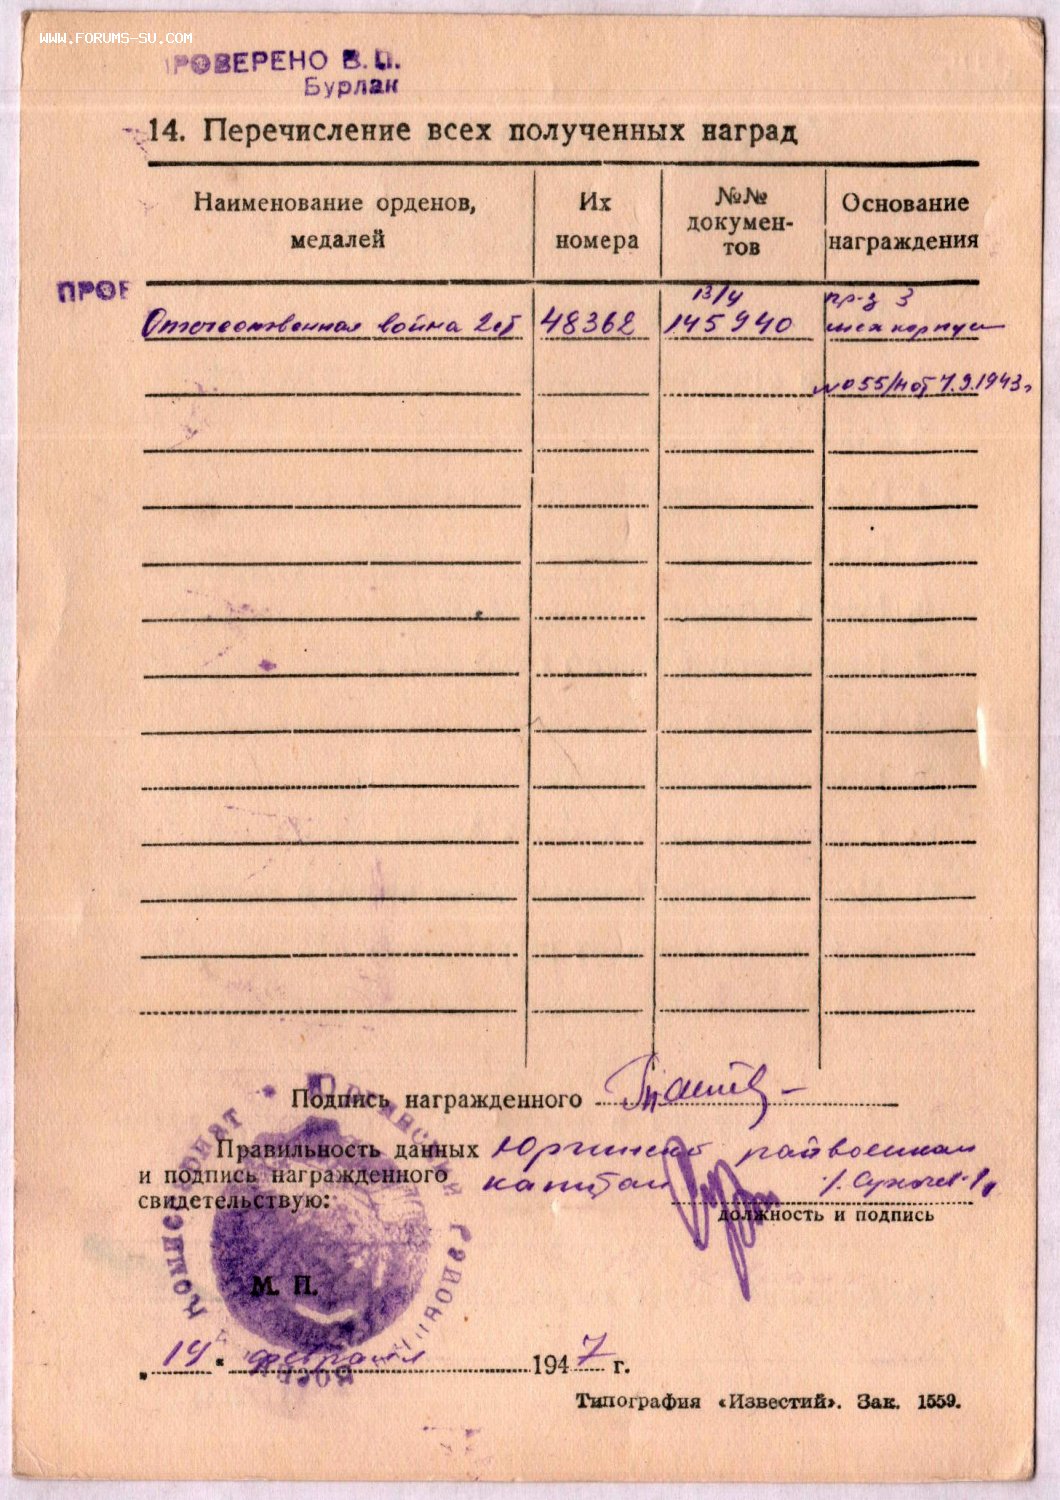 WWW.FORUMS-SU.COM
ПРОВЕРЕНО В.П.
Бурлак
14. Перечисление всех полученных наград
Наименование орденов, медалей
Их номера
№№ докумен-тов
Основание награждения
ПРОВ
В/ч
пр-з 3
Отечественная война 2 ст
48362
145940
мех корпуса
№ 055/н от 7.9.1943г
Подпись награжденного
Правильность данных
и подпись награжденного
свидетельствую:
Юргинский райвоенком
капитан
должность и подпись
М. П.
Юргинский Районный Военный Комиссариат
„ 14 " февраля 1947 г.
Типография «Известий». Зак. 1559.